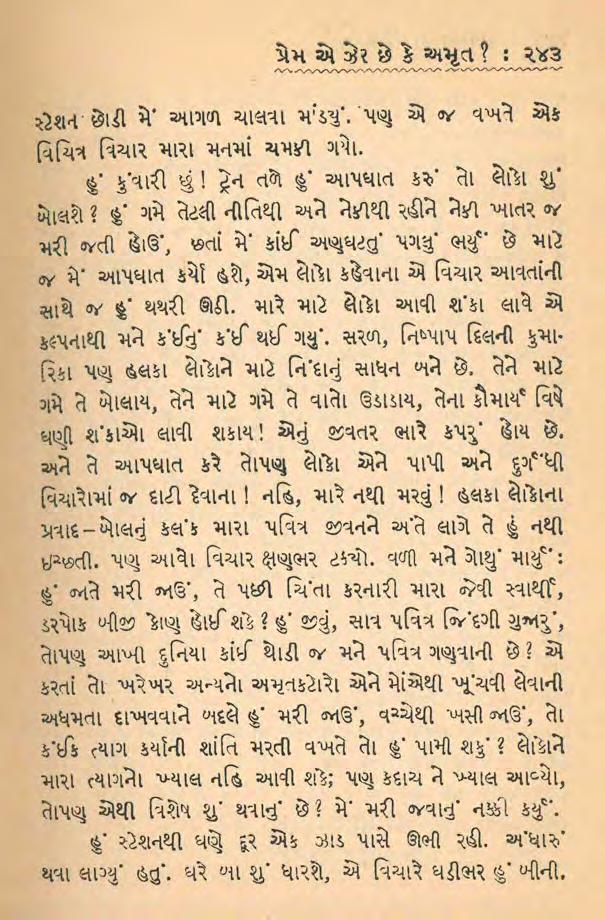 પ્રેમ એ ઝેર છે કે અમૃત? : ૨૪૩
સ્ટેશન છોડી મેં આગળ ચાલવા માંડયું. પણ એ જ વખતે એક
વિચિત્ર વિચાર મારા મનમાં ચમકી ગયો.
હું કુંવારી છું! ટ્રેન તળે હું આપઘાત કરું તો લોકો શું
બોલશે? હું ગમે તેટલી નીતિથી અને નેકીથી રહીને નેકી ખાતર જ
મરી જતી હોઉં, છતાં મેં કાંઈ અણઘટતું પગલું ભર્યું છે માટે
જ મેં આપઘાત કર્યો હશે, એમ લોકો કહેવાના એ વિચાર આવતાંની
સાથે જ હું થથરી ઊઠી. મારે માટે લોકો આવી શંકા લાવે એ
કલ્પનાથી મને કંઈનું કંઈ થઈ ગયું. સરળ, નિષ્પાપ દિલની કુમા-
રિકા પણ હલકા લોકોને માટે નિંદાનું સાધન બને છે. તેને માટે
ગમે તે બોલાય, તેને માટે ગમે તે વાતો ઉડાડાય, તેના કૌમાર્ય વિષે
ઘણી શંકાઓ લાવી શકાય! એનું જીવતર ભારે કપરું હોય છે.
અને તે આપઘાત કરે તોપણ લોકો એને પાપી અને દુર્ગંધી
વિચારોમાં જ દાટી દેવાના! નહિ, મારે નથી મરવું! હલકા લોકોના
પ્રવાદ–બોલનું કલંક મારા પવિત્ર જીવનને અંતે લાગે તે હું નથી
ઇચ્છતી. પણ આવો વિચાર ક્ષણભર ટક્યો. વળી મને ગોથું માર્યું:
હું જાતે મરી જાઉં, તે પછી ચિંતા કરનારી મારા જેવી સ્વાર્થી,
ડરપોક બીજી કોણ હોઈ શકે? હું જીવું, સાવ પવિત્ર જિંદગી ગુજારું,
તોપણ આખી દુનિયા કાંઈ થોડી જ મને પવિત્ર ગણવાની છે? એ
કરતાં તો ખરેખર અન્યનો અમૃતકટોરો એને મોંએથી ખૂંચવી લેવાની
અધમતા દાખવવાને બદલે હું મરી જાઉં, વચ્ચેથી ખસી જાઉં, તો
કંઈક ત્યાગ કર્યાની શાંતિ મરતી વખતે તો હું પામી શકું? લોકોને
મારા ત્યાગનો ખ્યાલ નહિ આવી શકે; પણ કદાચ ને ખ્યાલ આવ્યો,
તોપણ એથી વિશેષ શું થવાનું છે? મેં મરી જવાનું નક્કી કર્યું.
હું સ્ટેશનથી ઘણે દૂર એક ઝાડ પાસે ઊભી રહી. અંધારું
થવા લાગ્યું હતું. ઘરે બા શું ધારશે, એ વિચારે ઘડીભર હું બીની.